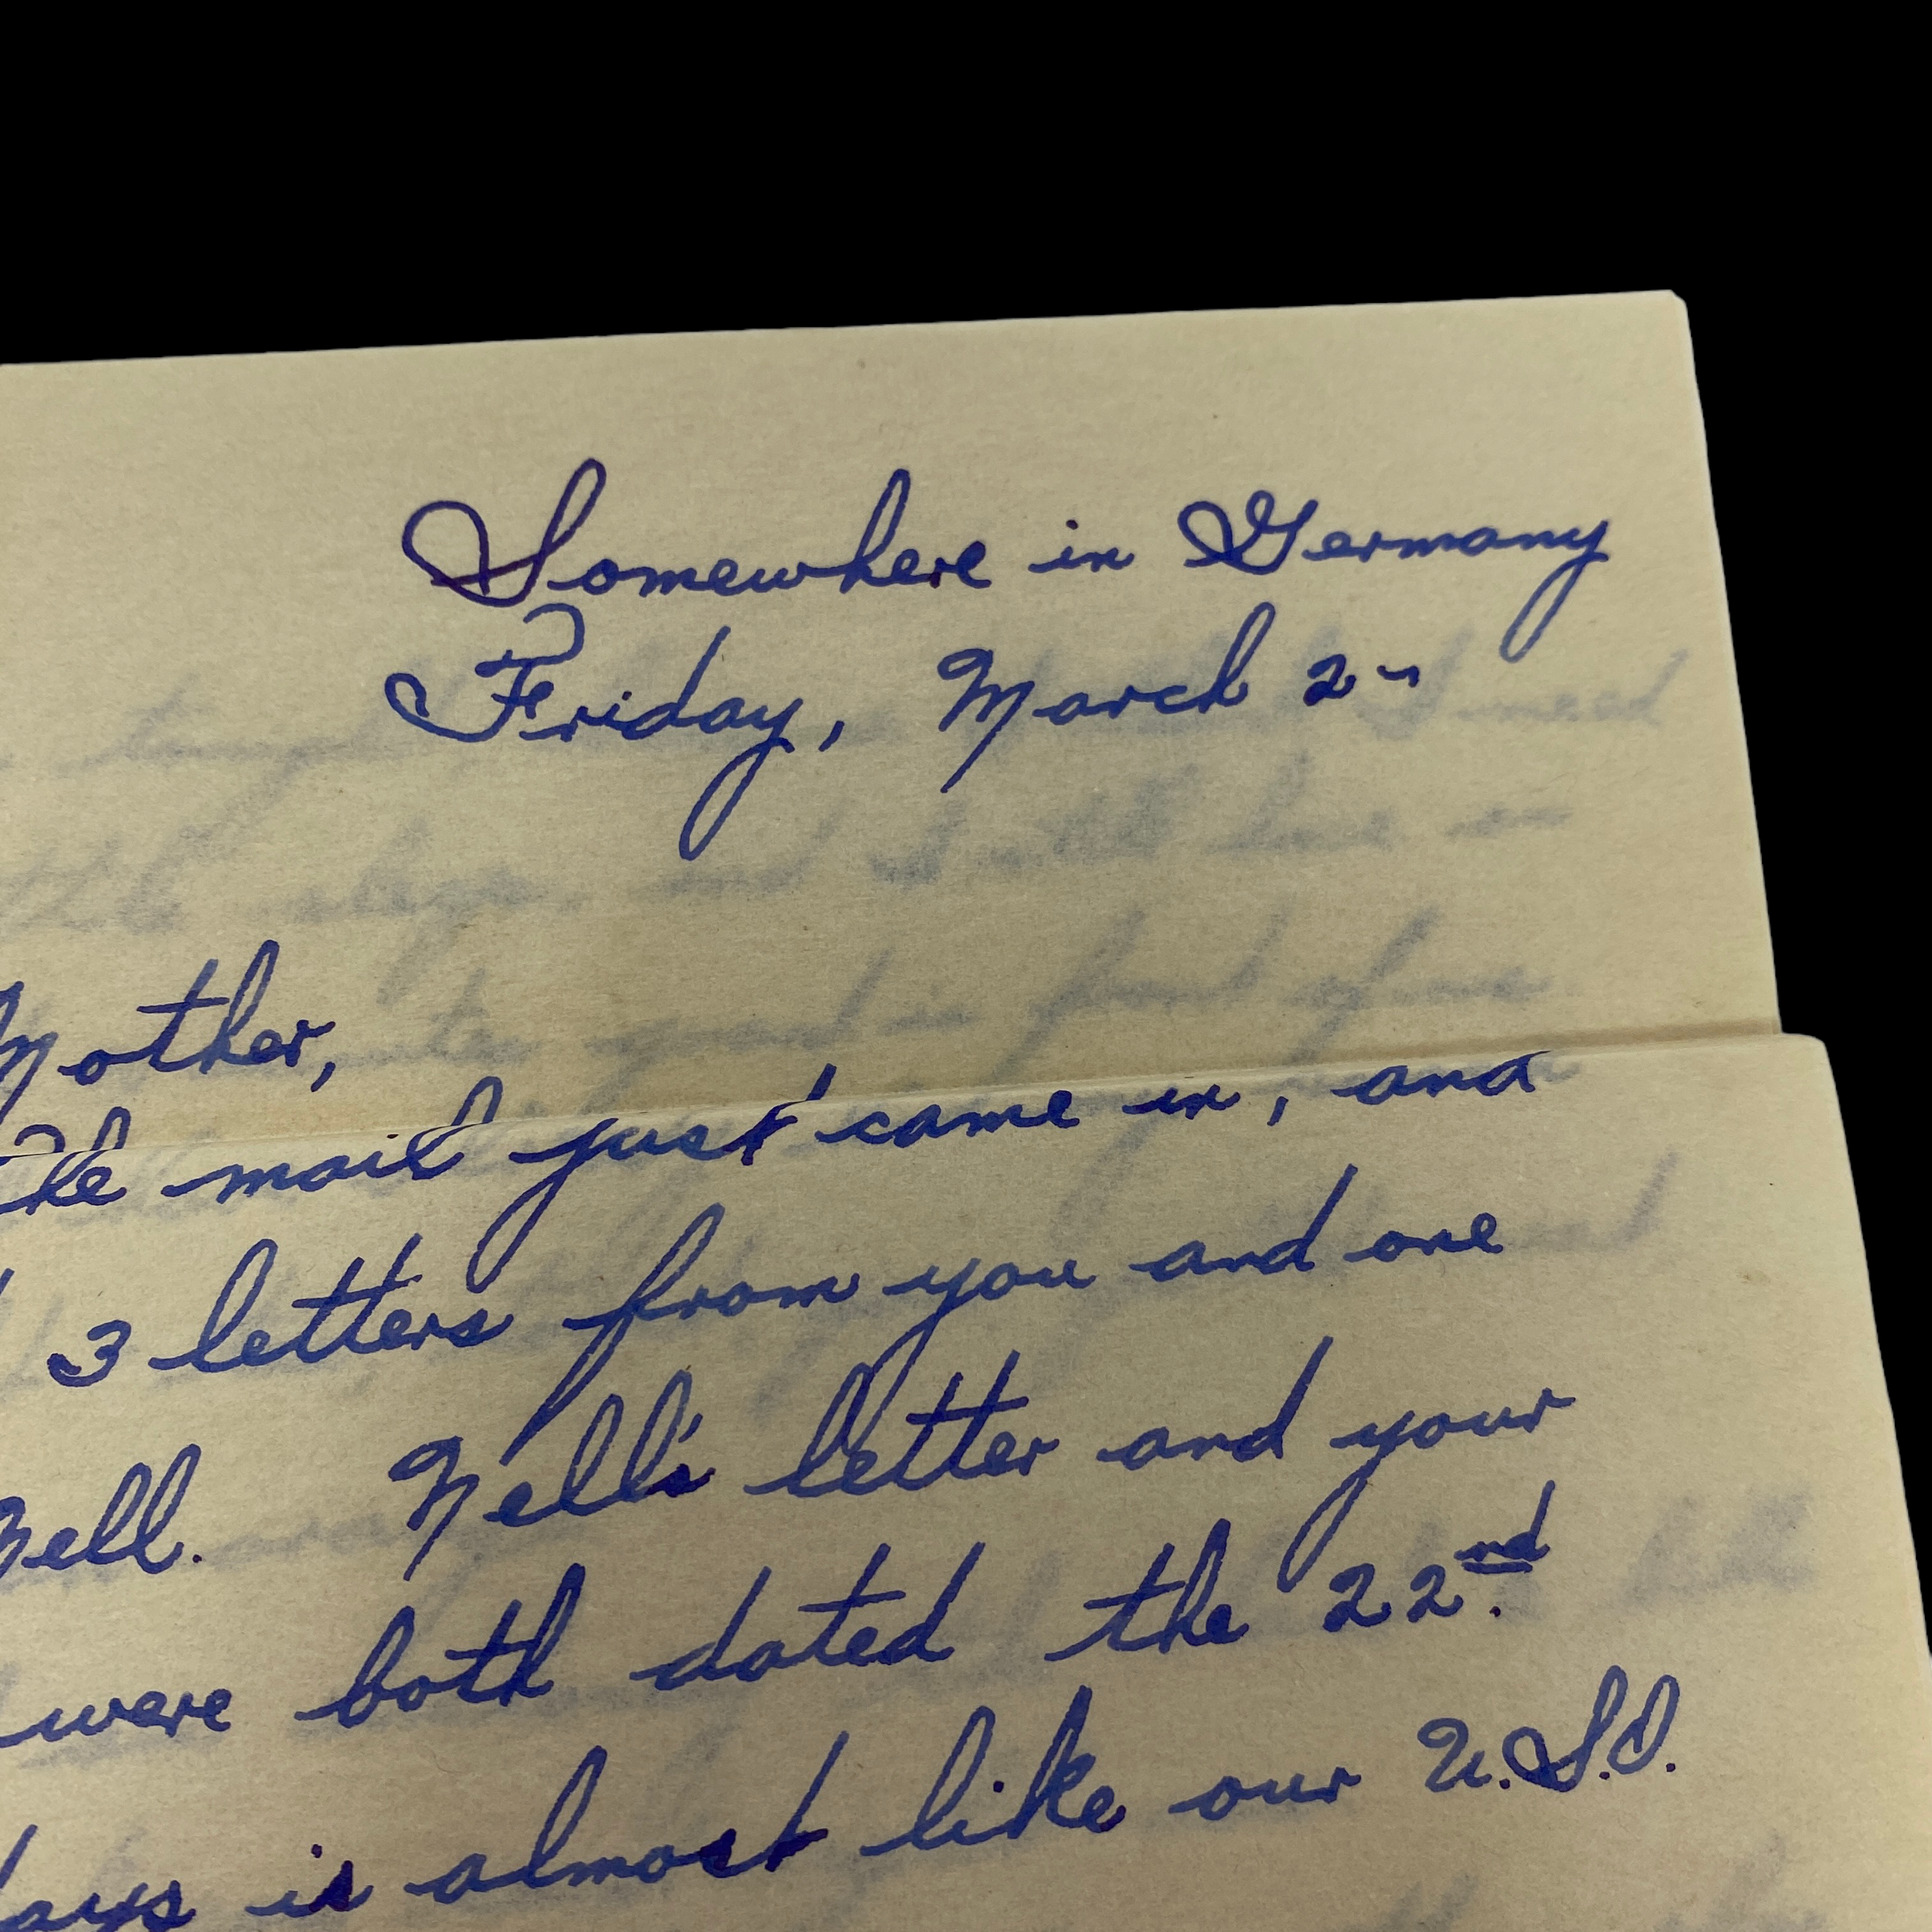 Somewhere in Germany
Friday, March 2~
Mother,
The mail just came in, and
3 letters from you and one
Nell. Nell's letter and your
were both dated the 22nd.
days is almost like our U.S.O.